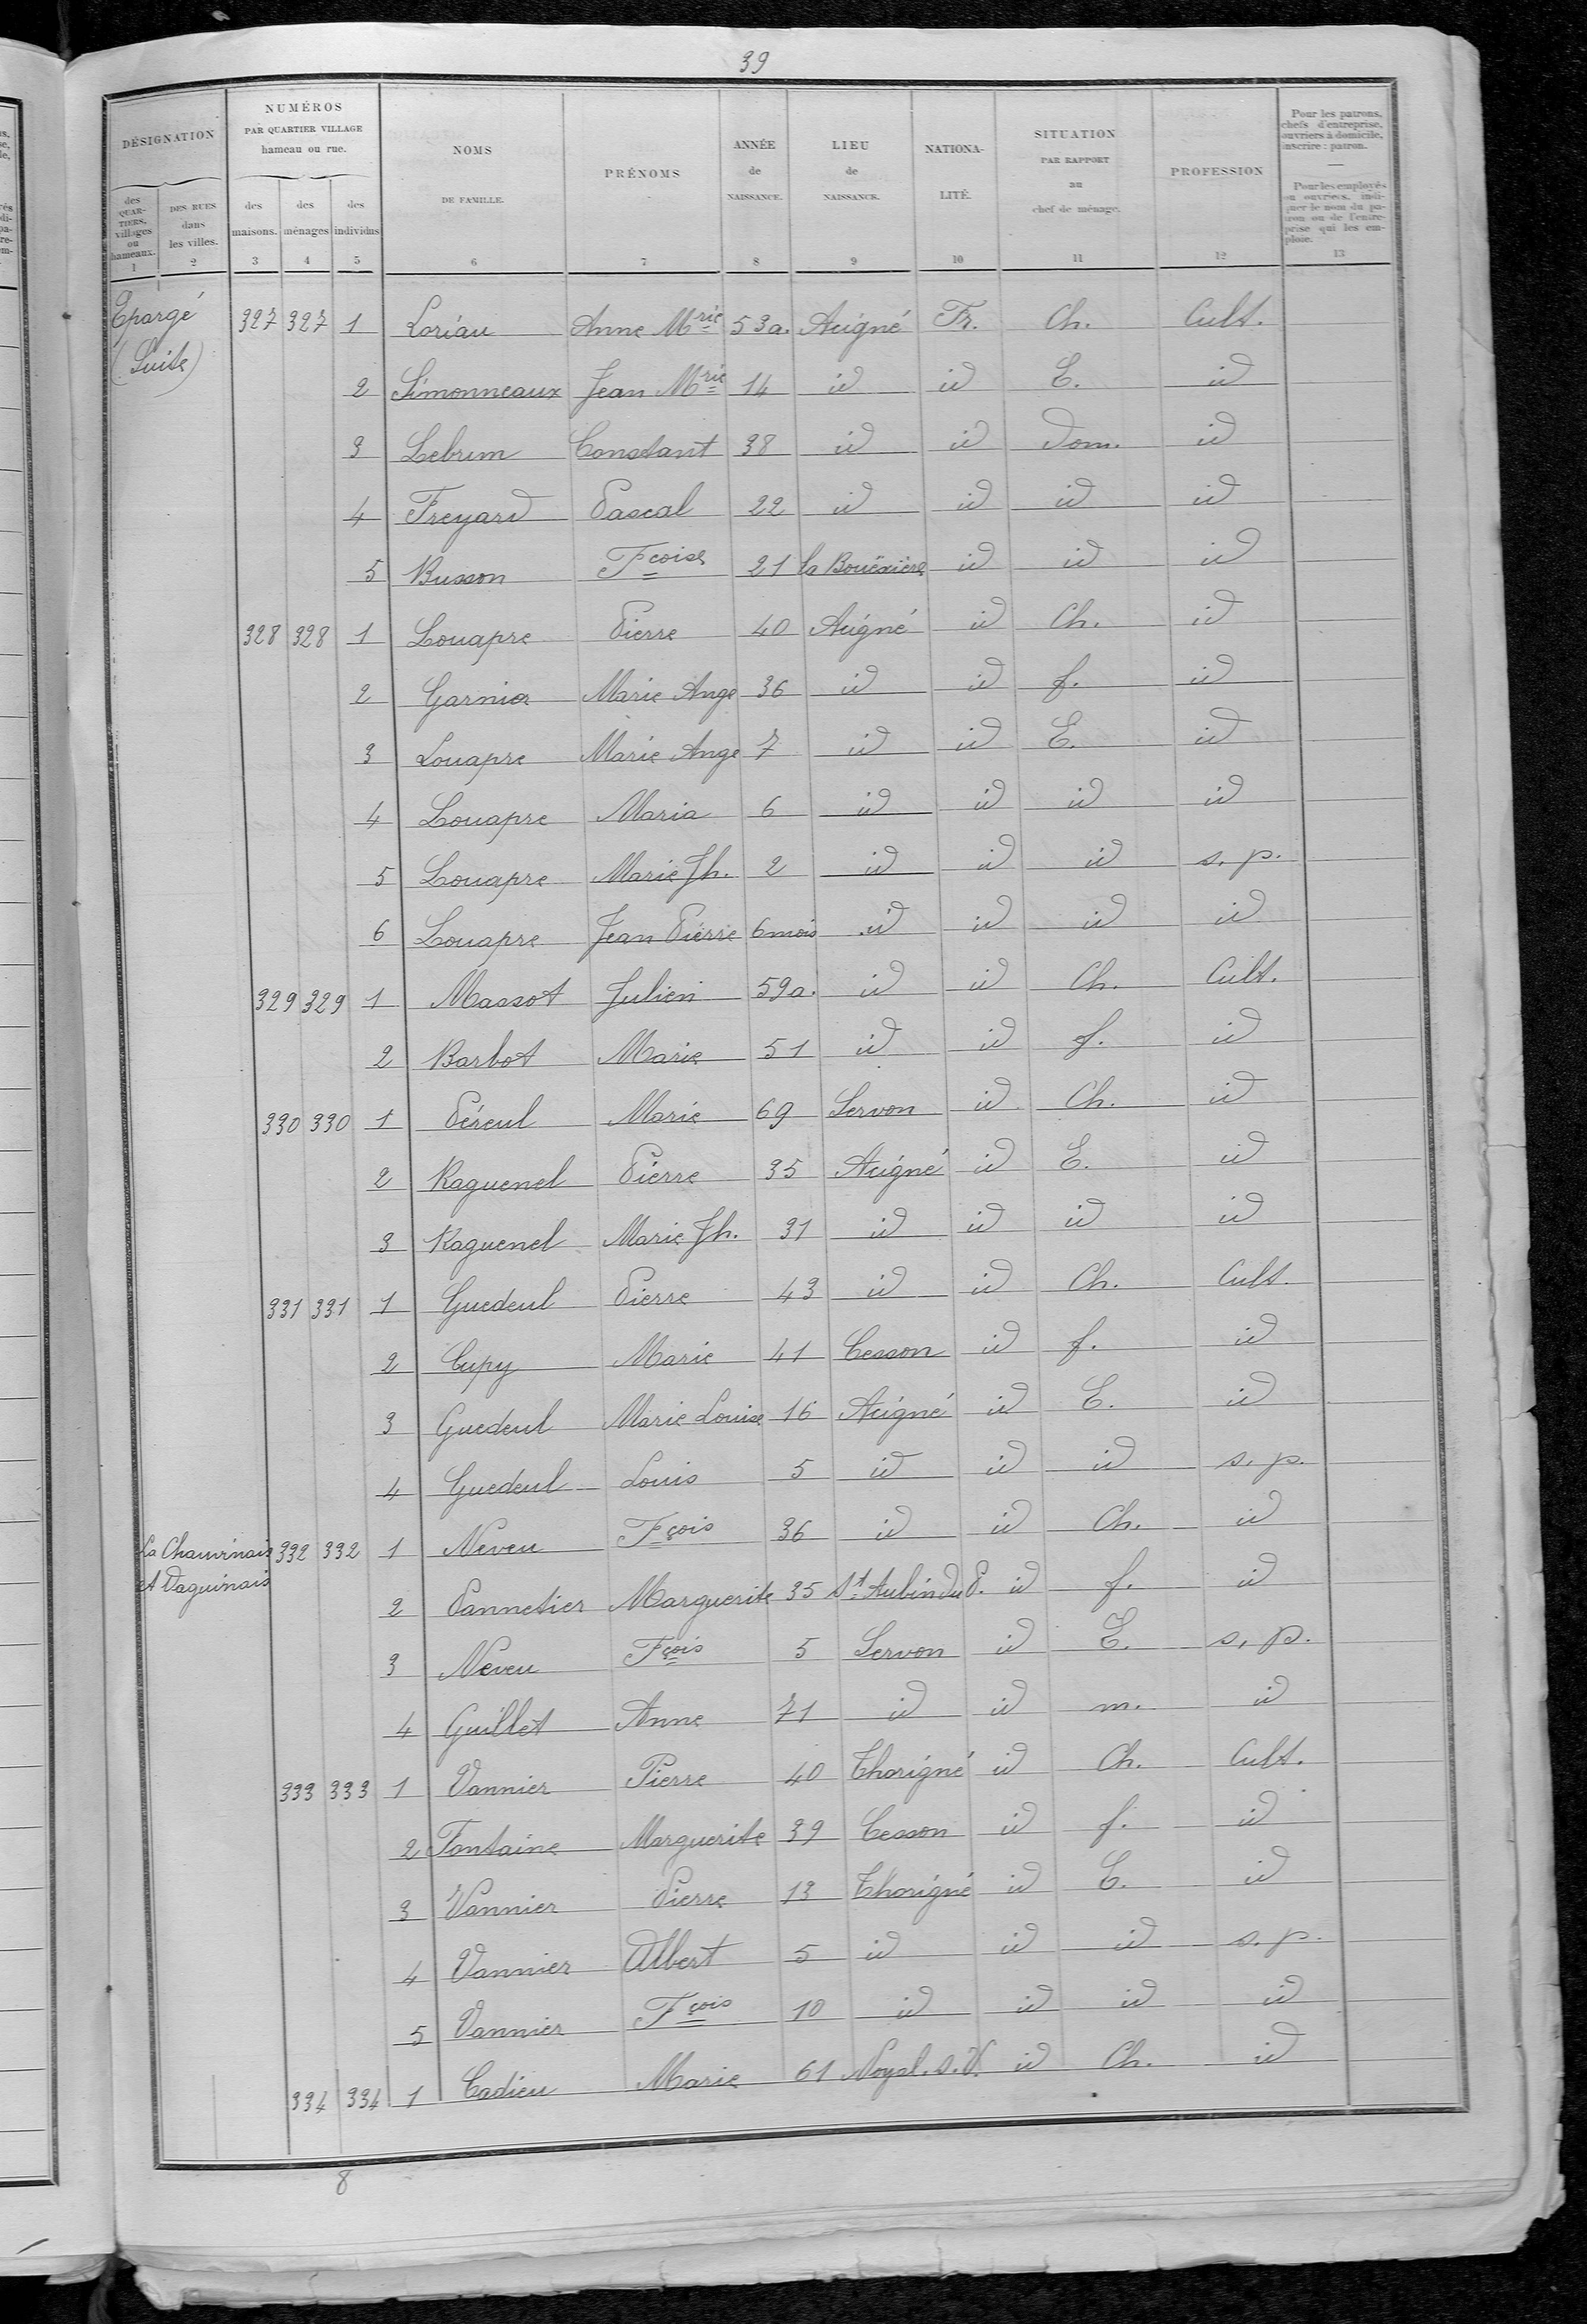 39
DÉSIGNATION
NUMÉROS
PAR QUARTIER VILLAGE
hameau ou rue.
NOMS
DE FAMILLE.
PRÉNOMS
ANNÉE
de
NAISSANCE.
LIEU
de
NAISSANCE.
NATIONA-
LITÉ.
SITUATION
PAR RAPPORT
au
chef de ménage.
PROFESSION
Pour les patrons,
chefs d'entreprise,
ouvriers à domicile,
inscrire : patron.
Pour les employés
ou ouvriers, indi-
quer le nom du pa-
tron ou de l'entre-
prise qui les em-
ploie.
des
QUAR-
TIERS,
villages
ou
hameaux.
DES RUES
dans
les villes.
des
maisons.
des
ménages
des
individus
1 2 3 4 5 6 7 8 9 10 11 12 13
Epargé 327 327 1 Loriau Anne Mrie 53 a. Acigné Fr. Ch. Cult.
(Suite)
2 Simonneaux Jean Mrie 14 id id E. id
3 Lebrun Constant 38 id id dom. id
4 Freyard Pascal 22 id id id id
5 Busson Fçoise 21 la Bouëxière id id id
328 328 1 Louapre Pierre 40 Acigné id Ch. id
2 Garnier Marie Ange 36 id id f. id
3 Louapre Marie Ange 7 id id E. id
4 Louapre Maria 6 id id id id
5 Louapre Marie Jh. 2 id id id s. p.
6 Louapre Jean Pierre 6 mois id id id id
329 329 1 Massot Julien 59 a. id id Ch. Cult.
2 Barbot Marie 51 id id f. id
330 330 1 Péreul Marie 69 Servon id Ch. id
2 Raguenel Pierre 35 Acigné id E. id
3 Raguenel Marie Jh. 31 id id id id
331 331 1 Guedeul Pierre 43 id id Ch. Cult.
2 Cupy Marie 41 Cesson id f. id
3 Guedeul Marie Louise 16 Acigné id E. id
4 Guedeul Louis 5 id id id s. p.
La Chauvinais 332 332 1 Neveu Fçois 36 id id Ch. id
et Daguinais
2 Pannetier Marguerite 35 St Aubin du P. id f. id
3 Neveu Fçois 5 Servon id E. s. p.
4 Guillet Anne 71 id id m. id
333 333 1 Vannier Pierre 40 Thorigné id Ch. Cult.
2 Fontaine Marguerite 39 Cesson id f. id
3 Vannier Pierre 13 Thorigné id E. id
4 Vannier Albert 5 id id id s. p.
5 Vannier Fçois 10 id id id id
334 334 1 Cadieu Marie 61 Noyal. s. V. id Ch. id
8